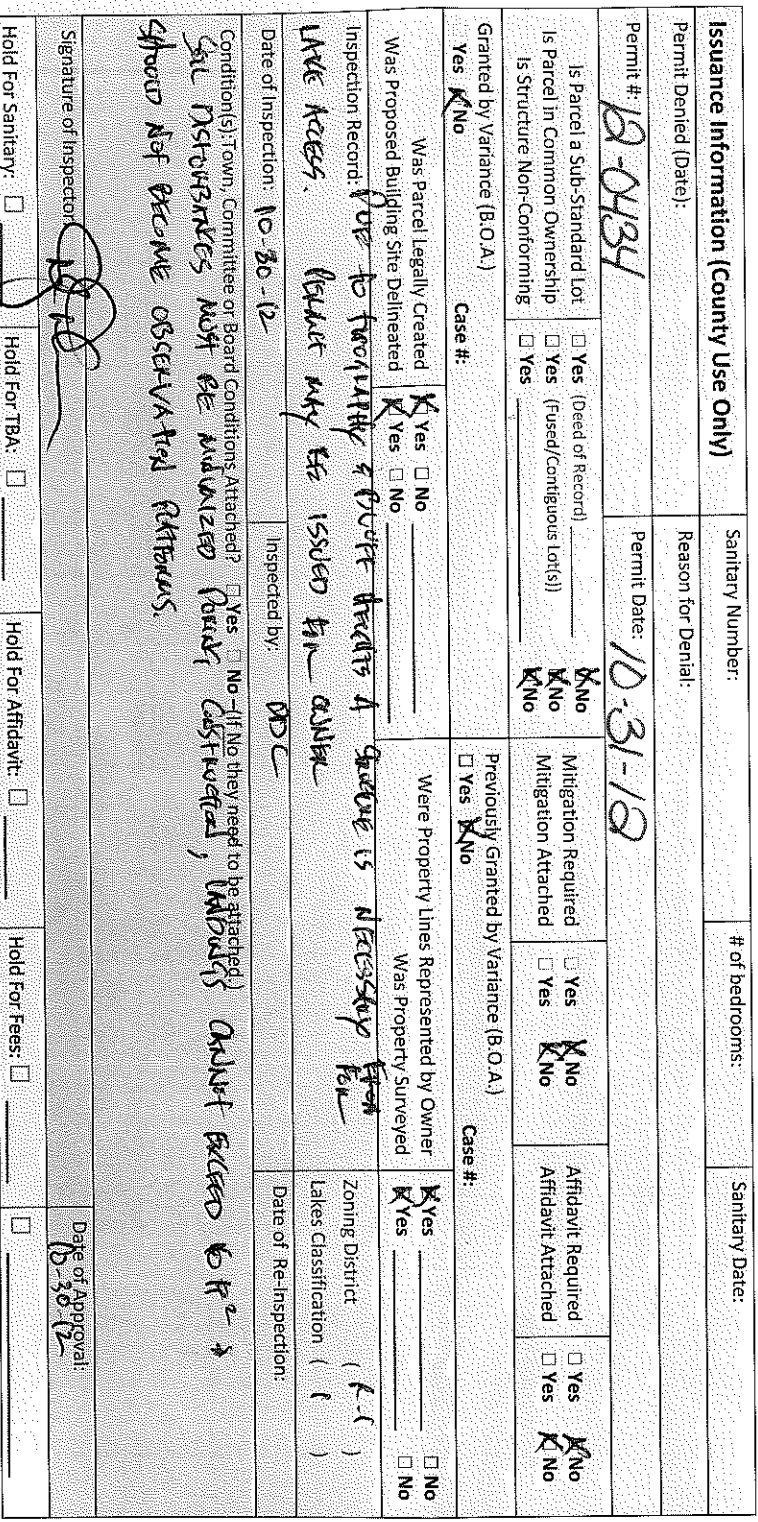 Issuance Information (County Use Only)
Sanitary Number:
# of bedrooms:
Sanitary Date:
Permit Denied (Date):
Reason for Denial:
Permit #: 12-0434
Permit Date: 10-31-12
Is Parcel a Sub-Standard Lot ☐ Yes (Deed of Record) ☒ No
Is Parcel in Common Ownership ☐ Yes (Fused/Contiguous Lot(s)) ☒ No
Is Structure Non-Conforming ☐ Yes ☒ No
Mitigation Required ☐ Yes ☒ No
Mitigation Attached ☐ Yes ☒ No
Affidavit Required ☐ Yes ☒ No
Affidavit Attached ☐ Yes ☒ No
Granted by Variance (B.O.A.)
Yes ☒ No Case #:
Previously Granted by Variance (B.O.A.)
☐ Yes ☒ No Case #:
Was Parcel Legally Created ☒ Yes ☐ No
Was Proposed Building Site Delineated ☒ Yes ☐ No
Were Property Lines Represented by Owner ☒ Yes ☐ No
Was Property Surveyed ☒ Yes ☐ No
Inspection Record: Due to topography & bluff heights a structure is necessary for
LAKE ACCESS. PERMIT MAY BE ISSUED for owner
Zoning District ( R-1 )
Lakes Classification ( 1 )
Date of Inspection: 10-30-12
Inspected by: DDC
Date of Re-Inspection:
Condition(s): Town, Committee or Board Conditions Attached? ☐ Yes ☐ No – (If No they need to be attached.)
Soil DISTURBANCES MUST BE MINIMIZED DURING CONSTRUCTION, LANDINGS CANNOT EXCEED
SHOULD NOT BECOME OBSERVATION PLATFORMS.
Signature of Inspector:
Date of Approval:
10-30-12
Hold For Sanitary: ☐
Hold For TBA: ☐
Hold For Affidavit: ☐
Hold For Fees: ☐
☐